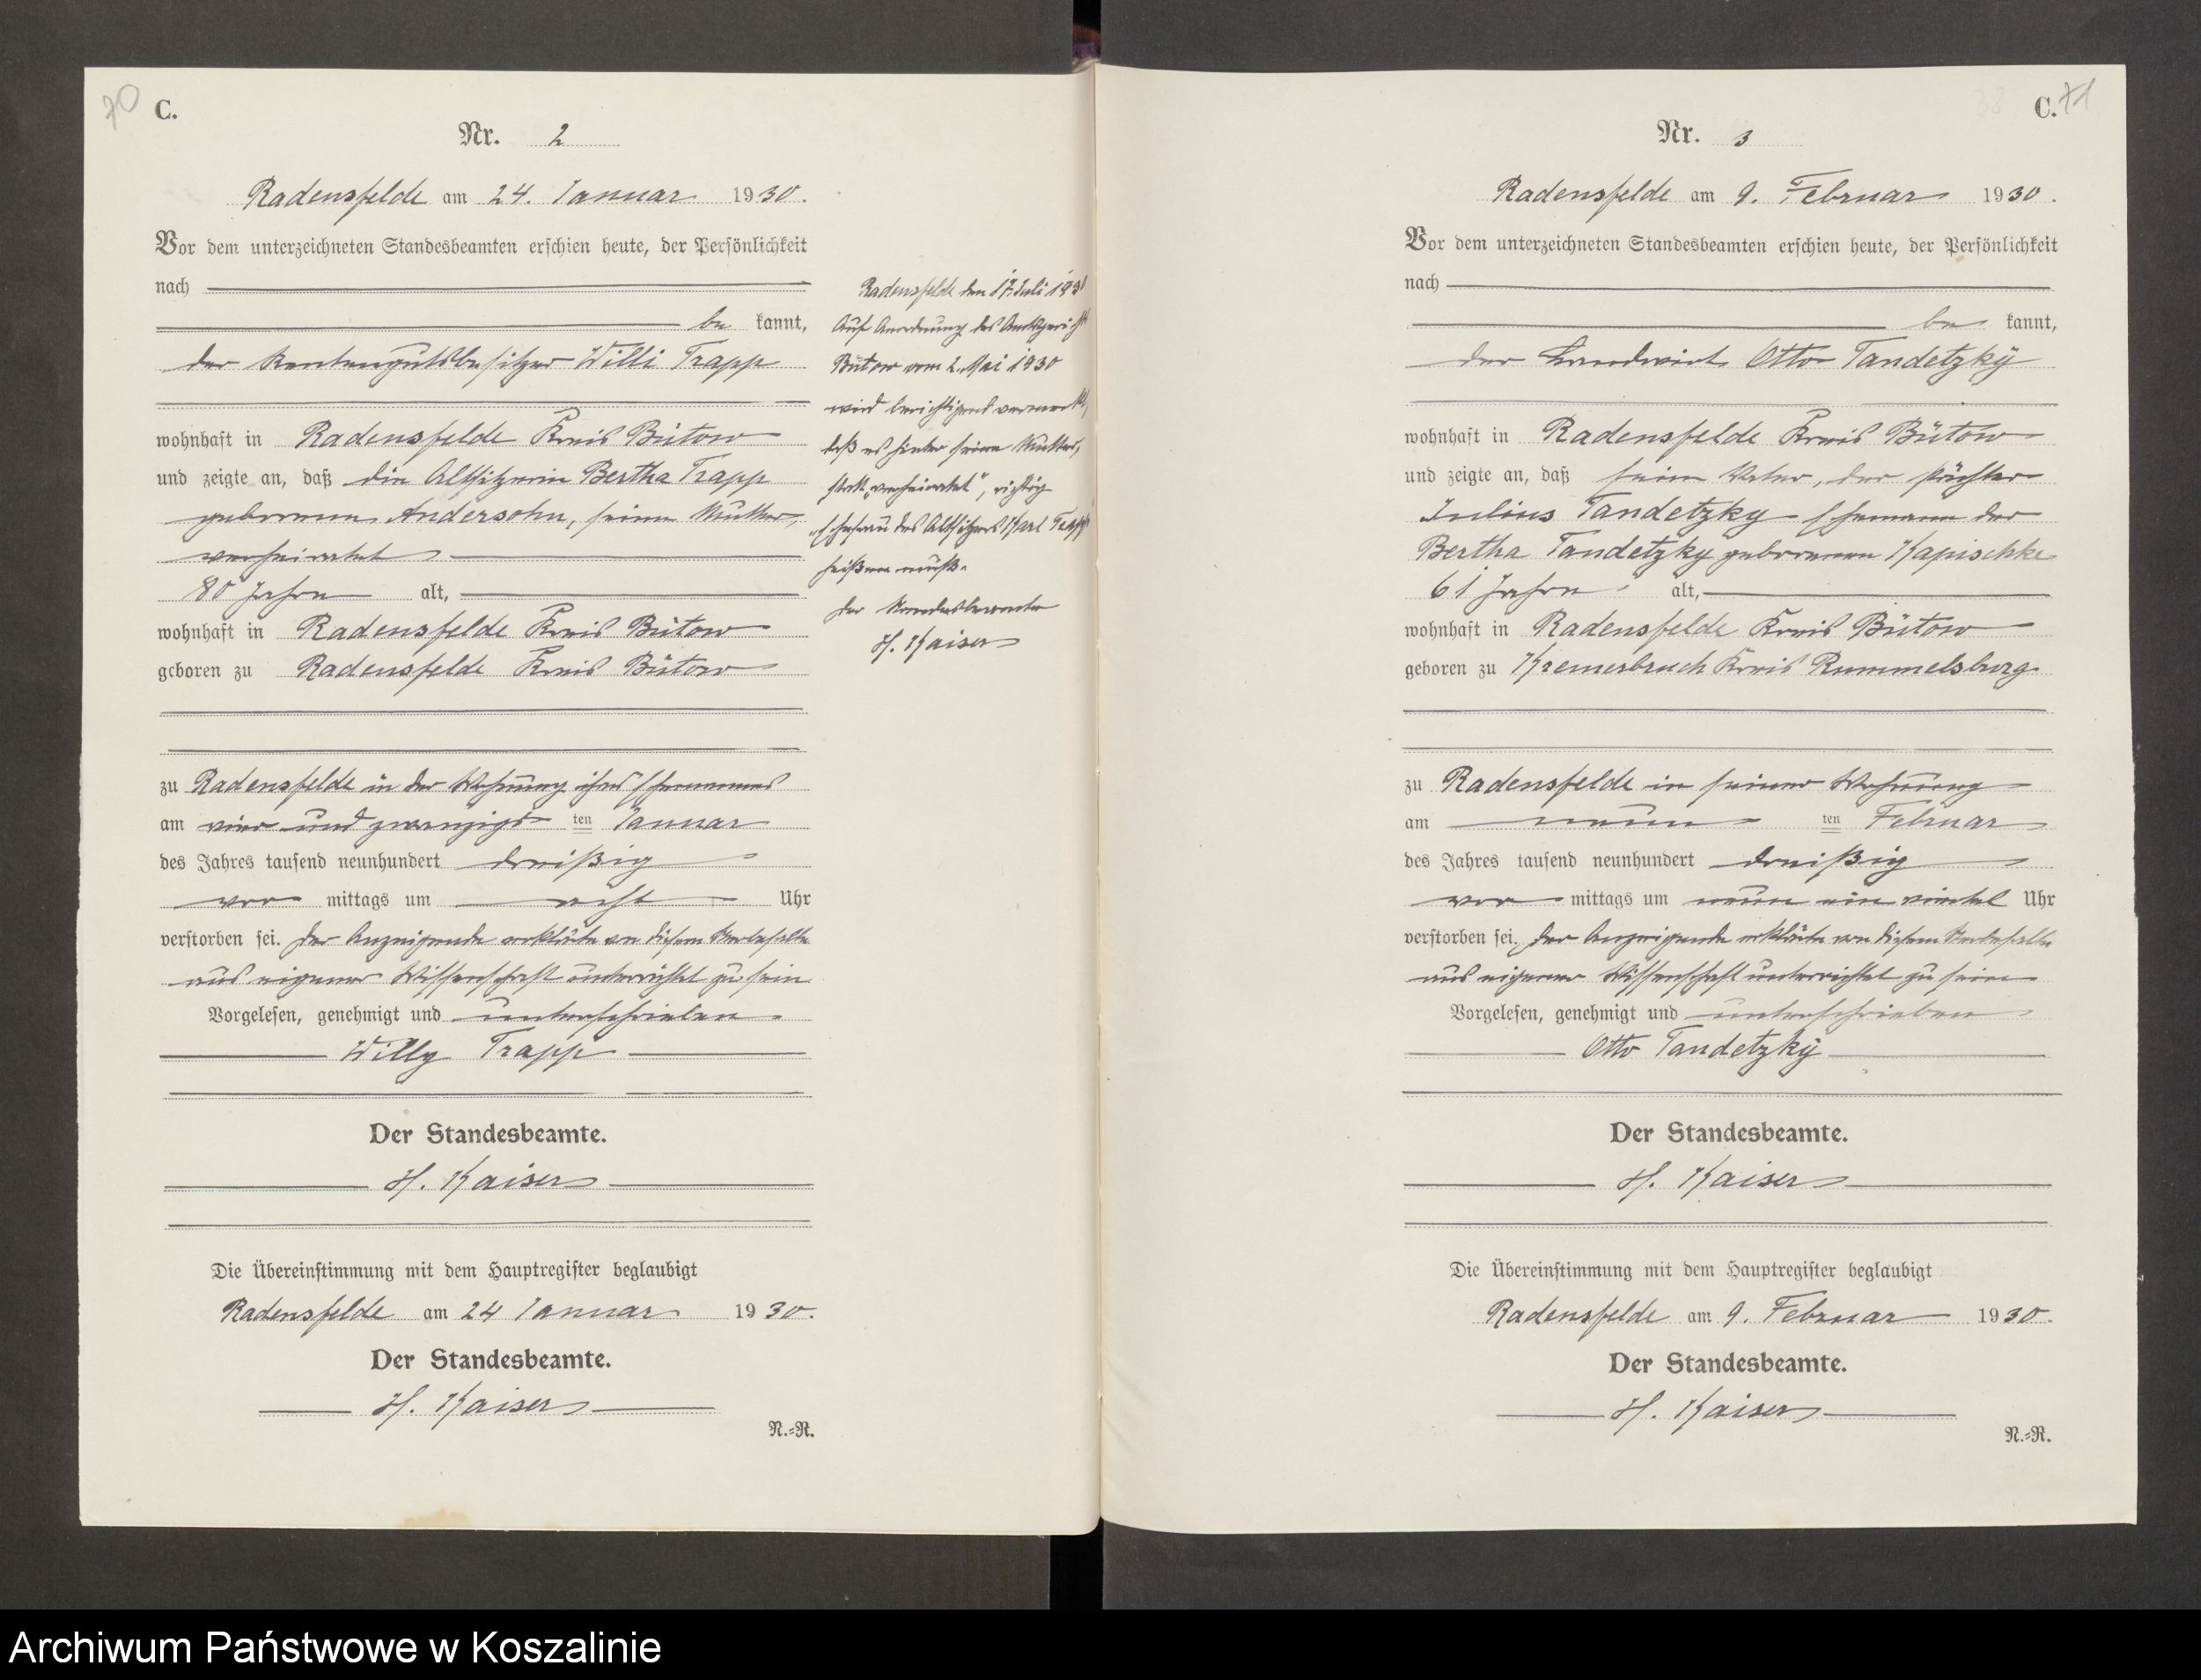 70
C.
Nr. 2
Radensfelde am 24. Januar 1930.
Vor dem unterzeichneten Standesbeamten erschien heute, der Persönlichkeit
nach
be kannt,
der Rentengutsbesitzer Willi Trapp
wohnhaft in Radensfelde Kreis Bütow
und zeigte an, daß die Altsitzerin Bertha Trapp
geborenen Andersohn, seine Mutter,
verheiratet
80 Jahre alt,
wohnhaft in Radensfelde Kreis Bütow
geboren zu Radensfelde Kreis Bütow
zu Radensfelde in der Wohnung ihres Ehemannes
am vier und zwanzigs ten Januar
des Jahres tausend neunhundert dreißig
vor mittags um acht Uhr
verstorben sei. Der Anzeigende erklärte von diesem Sterbefalle
aus eigener Wissenschaft unterrichtet zu sein
Vorgelesen, genehmigt und unterschrieben
Willy Trapp
Der Standesbeamte.
H. Kaiser
Die Übereinstimmung mit dem Hauptregister beglaubigt
Radensfelde am 24 Januar 1930.
Der Standesbeamte.
H. Kaiser
N.=R.
Radensfelde den 17. Juli 193
Auf Anordnung des Amtsgericht
Bütow vom 2. Mai 1930
wird berichtigend vermerkt,
daß es hinter seine Mutter,
statt „verheiratet", richtig
„Ehefrau des Altsitzers Karl Trapp
heißen muß.
Der Standesbeamte
H. Kaiser
C. 71
Nr. 3
Radensfelde am 9. Februar 1930.
Vor dem unterzeichneten Standesbeamten erschien heute, der Persönlichkeit
nach
be kannt,
der Landwirt Otto Tandetzky
wohnhaft in Radensfelde Kreis Bütow
und zeigte an, daß sein Vater, der Pächter
Julius Tandetzky Ehemann der
Bertha Tandetzky geborenen Kapischke
61 Jahre alt,
wohnhaft in Radensfelde Kreis Bütow
geboren zu Kremerbruch Kreis Rummelsburg
zu Radensfelde in seiner Wohnung
am neun ten Februar
des Jahres tausend neunhundert dreißig
vor mittags um neun ein viertel Uhr
verstorben sei. Der Anzeigende erklärte von diesem Sterbefalle
aus eigener Wissenschaft unterrichtet zu sein
Vorgelesen, genehmigt und unterschrieben
Otto Tandetzky
Der Standesbeamte.
H. Kaiser
Die Übereinstimmung mit dem Hauptregister beglaubigt
Radensfelde am 9. Februar 1930.
Der Standesbeamte.
H. Kaiser
N.=R.
Archiwum Państwowe w Koszalinie